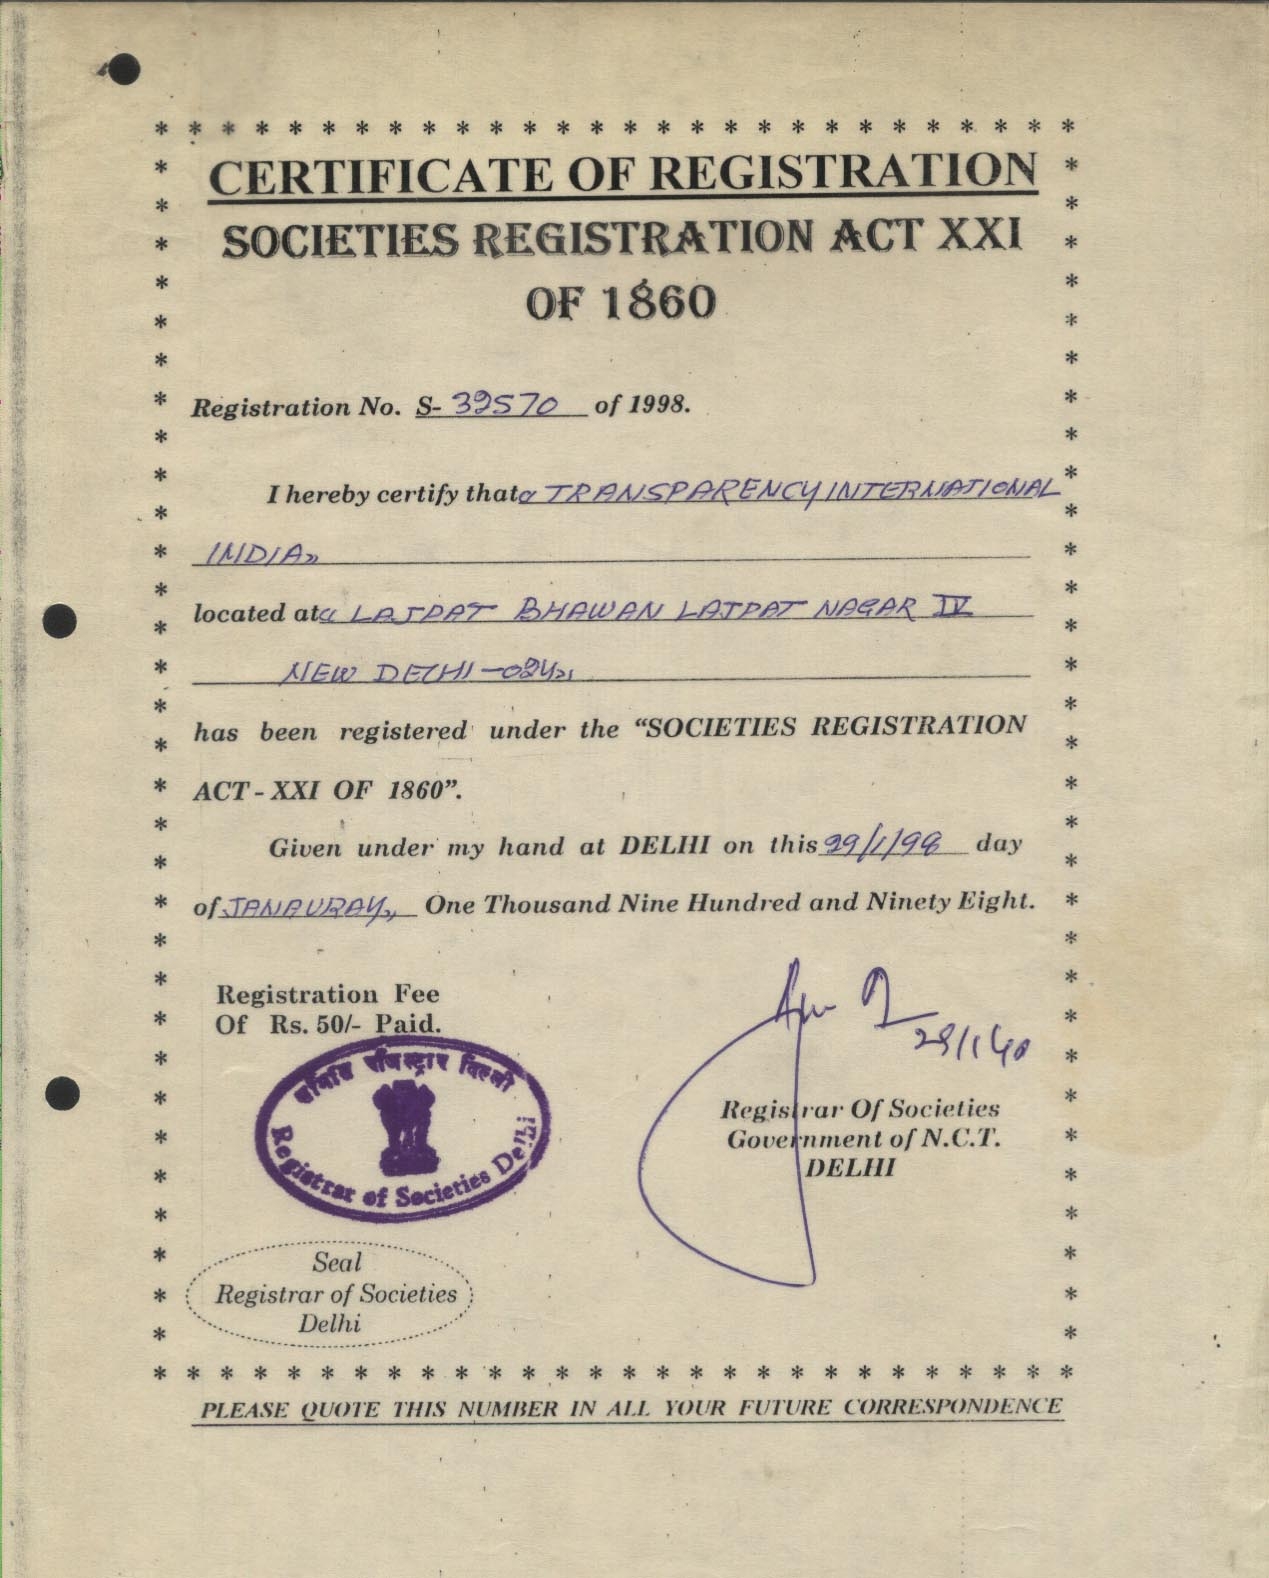 CERTIFICATE OF REGISTRATION
SOCIETIES REGISTRATION ACT XXI
OF 1860
Registration No. S- 32570 of 1998.
I hereby certify that " TRANSPARENCY INTERNATIONAL
INDIA"
located at " LAJPAT BHAWAN LAJPAT NAGAR IV
NEW DELHI-024"
has been registered under the "SOCIETIES REGISTRATION
ACT - XXI OF 1860".
Given under my hand at DELHI on this 29/1/98 day
of JANAURAY", One Thousand Nine Hundred and Ninety Eight.
Registration Fee
Of Rs. 50/- Paid.
रजिस्ट्रार दिल्ली
Registrar of Societies Delhi
Registrar Of Societies
Government of N.C.T.
DELHI
Seal
Registrar of Societies
Delhi
PLEASE QUOTE THIS NUMBER IN ALL YOUR FUTURE CORRESPONDENCE